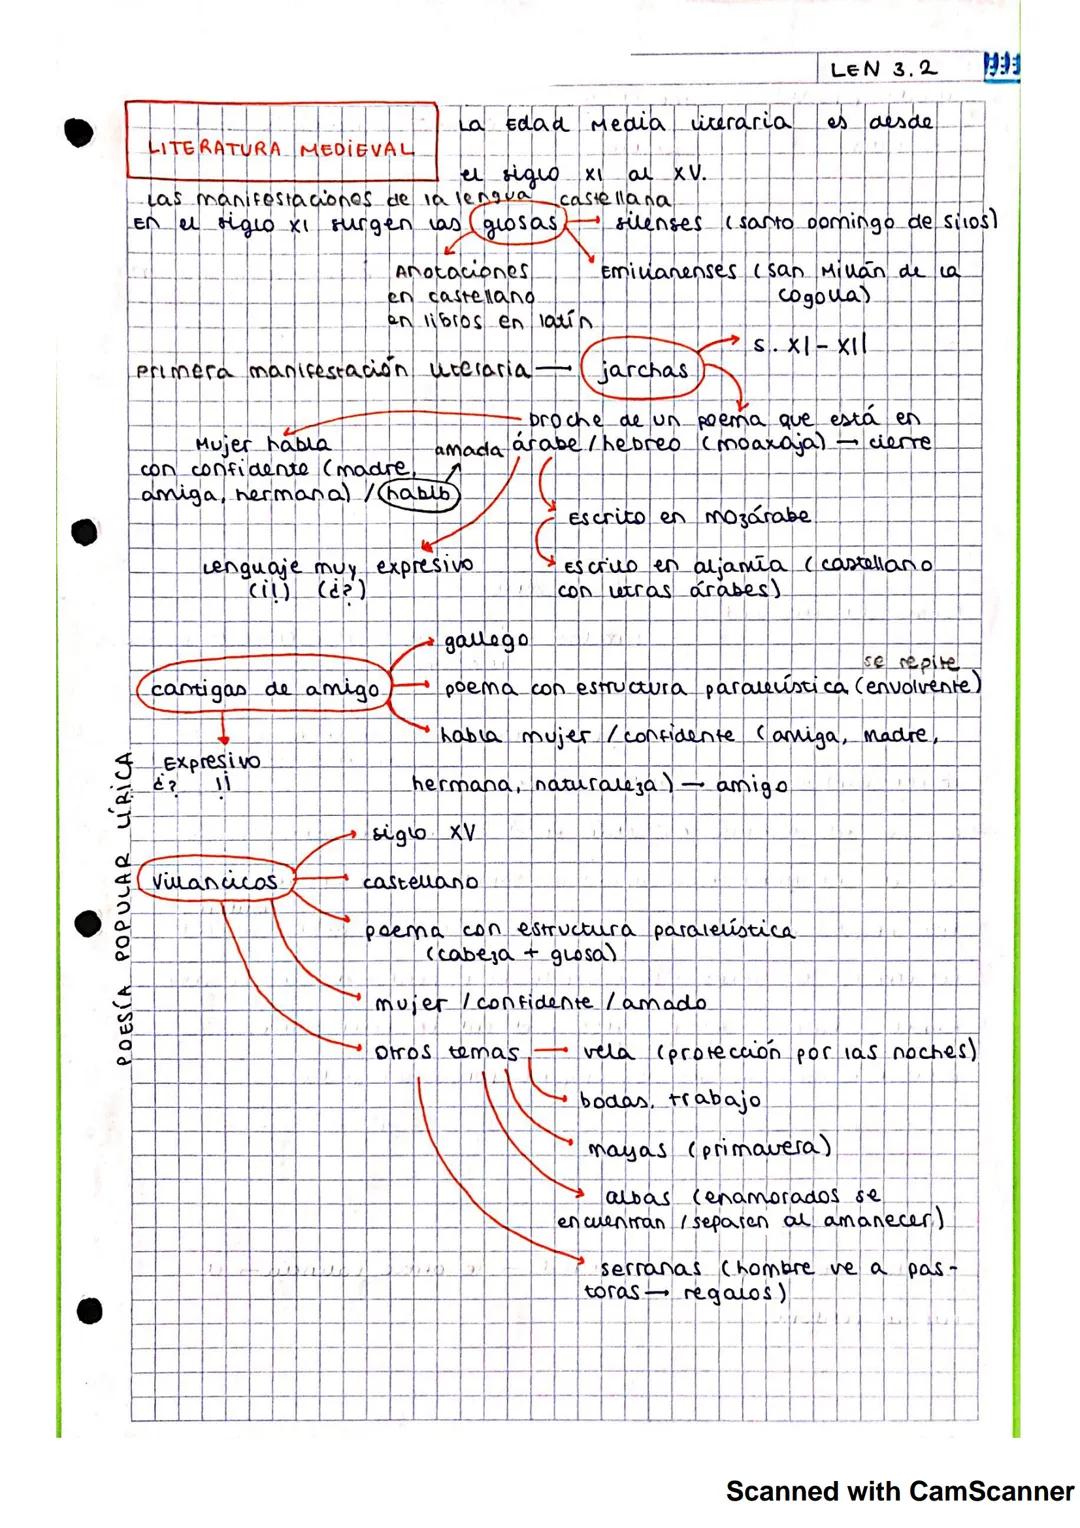 LEN 3.2
LITERATURA MEDIEVAL
La Edad Media literaria es desde
el siglo XI al XV.
Las manifestaciones de la lengua castellana
En el siglo XI surgen las glosas → silenses (santo Domingo de silos)
Anotaciones
en castellano
en libros en latín
Emilianenses (san Millán de la
cogolla)
primera manifestación literaria — jarchas
s. XI - XII
broche de un poema que está en
árabe / hebreo (moaxaja) → cierre
Mujer habla
con confidente (madre,
amiga, hermana) / habib
amada
Escrito en mozárabe
Lenguaje muy expresivo
(¡!) (¿?)
Escrito en aljamía (castellano
con letras árabes)
cantigas de amigo
gallego
se repite
poema con estructura paralelística (envolvente)
habla mujer / confidente (amiga, madre,
hermana, naturaleza) → amigo
Expresivo
¿? ¡!
POESÍA POPULAR LÍRICA
Villancicos
siglo XV
castellano
poema con estructura paralelística
(cabeza + glosa)
mujer / confidente / amado
otros temas → vela (protección por las noches)
bodas, trabajo
mayas (primavera)
albas (enamorados se
encuentran / separan al amanecer)
serranas (hombre ve a pas-
toras → regalos)
Scanned with CamScanner